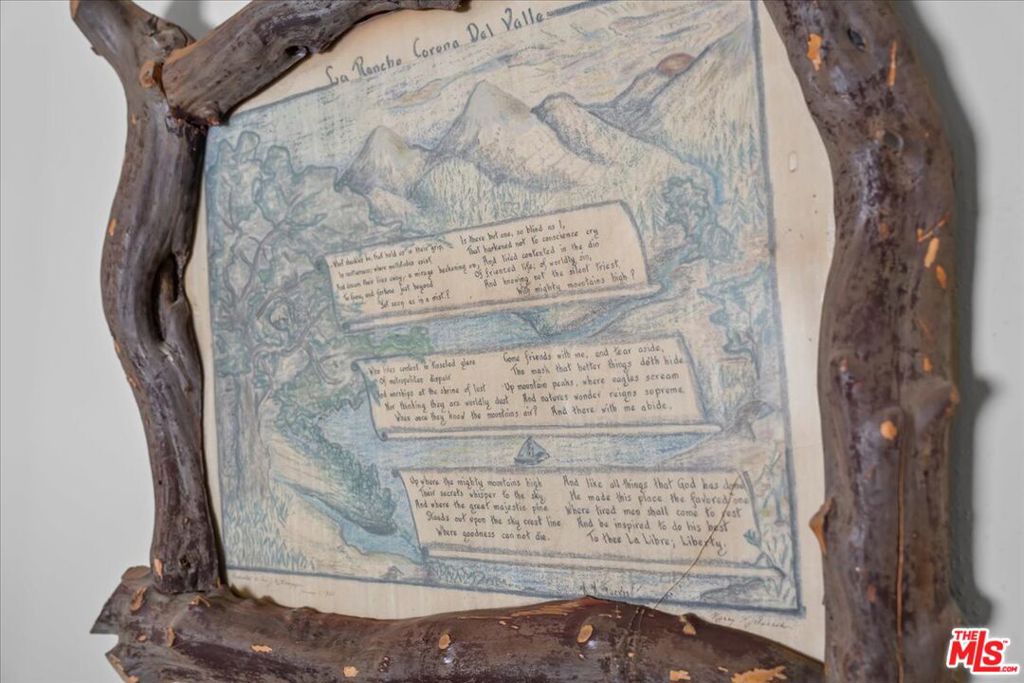 La Rancho Corona Del Valle
What shackles be, that hold us in their grip.
In nothingness; where multitudes exist
And dream their lives away; a mirage beckoning on,
To fame, and fortune just beyond
Yet seen as in a mist?
Is there but one, so blind as I,
That harkened not to conscience cry
And lived contented in the din
Of frienied life; of worldly sin,
And knowing not the silent Priest
Way mighty mountains high?
Who lives content to tinseled glare
Of metropolitan dispair
And worships at the shrine of lust
Nor thinking they are worldly dust
When once they know the mountains air?
Come friends with me, and tear aside,
The mask that better things doth hide
Up mountain peaks, where eagles scream
And natures wonder reigns supreme.
And there with me abide.
Up where the mighty mountains high
Their secrets whisper to the sky
And where the great majestic pine
Stands out upon the sky crest line
Where goodness can not die.
And like all things that God has done
He made this place the favored one
Where tired men shall come to rest
And be inspired to do his best
To thee La Libre; Liberty.
THE
MLS
.COM